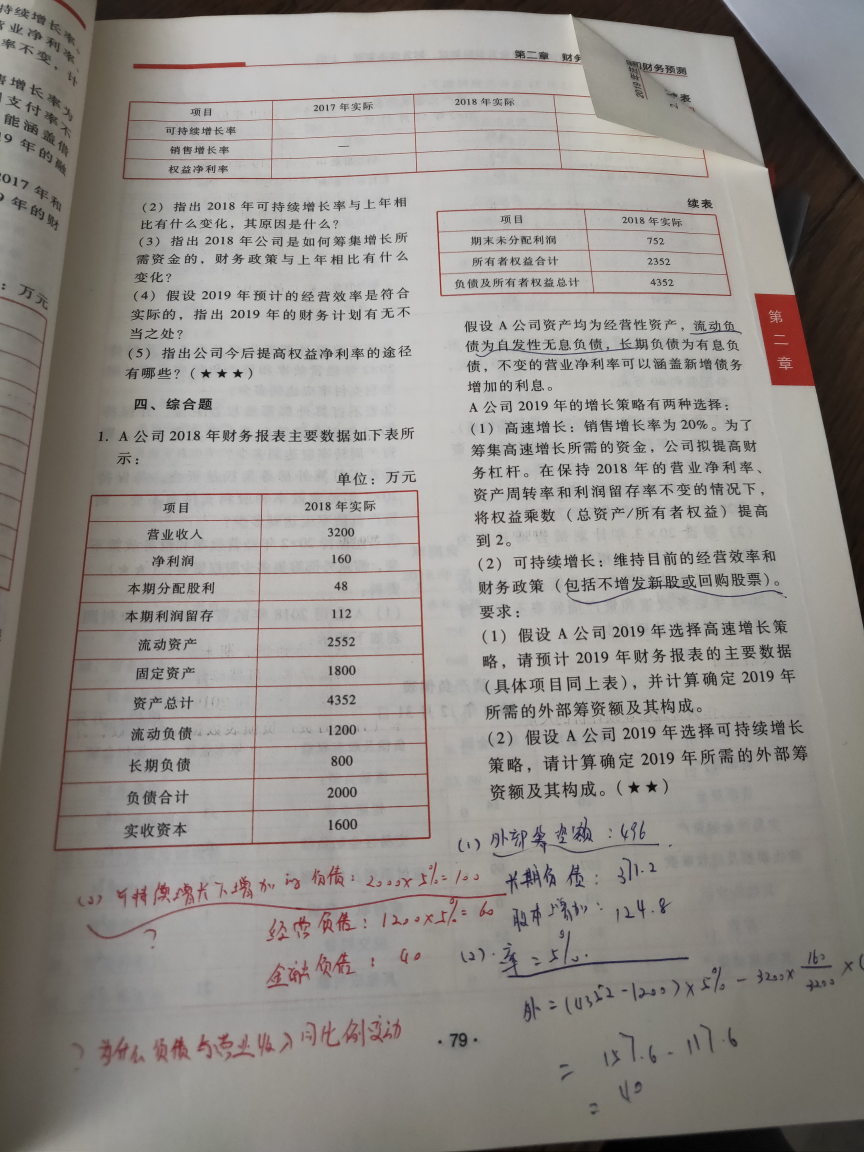 持续增长率、
营业净利率、
率不变，计
售增长率为
支付率不
能涵盖借
19 年的融
2017 年和
9 年的财
：万元
第二章 财务
和财务预测
续表
项目 2017 年实际 2018 年实际
可持续增长率
销售增长率 —
权益净利率
（2）指出 2018 年可持续增长率与上年相
比有什么变化，其原因是什么？
（3）指出 2018 年公司是如何筹集增长所
需资金的，财务政策与上年相比有什么
变化？
（4）假设 2019 年预计的经营效率是符合
实际的，指出 2019 年的财务计划有无不
当之处？
（5）指出公司今后提高权益净利率的途径
有哪些？（★★★）
四、综合题
1. A 公司 2018 年财务报表主要数据如下表所
示：
单位：万元
项目 2018 年实际
营业收入 3200
净利润 160
本期分配股利 48
本期利润留存 112
流动资产 2552
固定资产 1800
资产总计 4352
流动负债 1200
长期负债 800
负债合计 2000
实收资本 1600
续表
项目 2018 年实际
期末未分配利润 752
所有者权益合计 2352
负债及所有者权益总计 4352
假设 A 公司资产均为经营性资产，流动负
债为自发性无息负债，长期负债为有息负
债，不变的营业净利率可以涵盖新增债务
增加的利息。
A 公司 2019 年的增长策略有两种选择：
（1）高速增长：销售增长率为 20%。为了
筹集高速增长所需的资金，公司拟提高财
务杠杆。在保持 2018 年的营业净利率、
资产周转率和利润留存率不变的情况下，
将权益乘数（总资产/所有者权益）提高
到 2。
（2）可持续增长：维持目前的经营效率和
财务政策（包括不增发新股或回购股票）。
要求：
（1）假设 A 公司 2019 年选择高速增长策
略，请预计 2019 年财务报表的主要数据
（具体项目同上表），并计算确定 2019 年
所需的外部筹资额及其构成。
（2）假设 A 公司 2019 年选择可持续增长
策略，请计算确定 2019 年所需的外部筹
资额及其构成。（★★）
第二章
(1) 外部筹资额：496
长期负债：371.2
股本增加：124.8
(2). 率 = 5%.
外 = (4352-1200)×5% - 3200× 160/3200 ×(
= 157.6 - 117.6
= 40
(2) 可持续增长下增加的负债：2000×5%=100
？ 经营负债：1200×5%=60
金融负债：40
？为什么负债与营业收入同比例变动
·79·